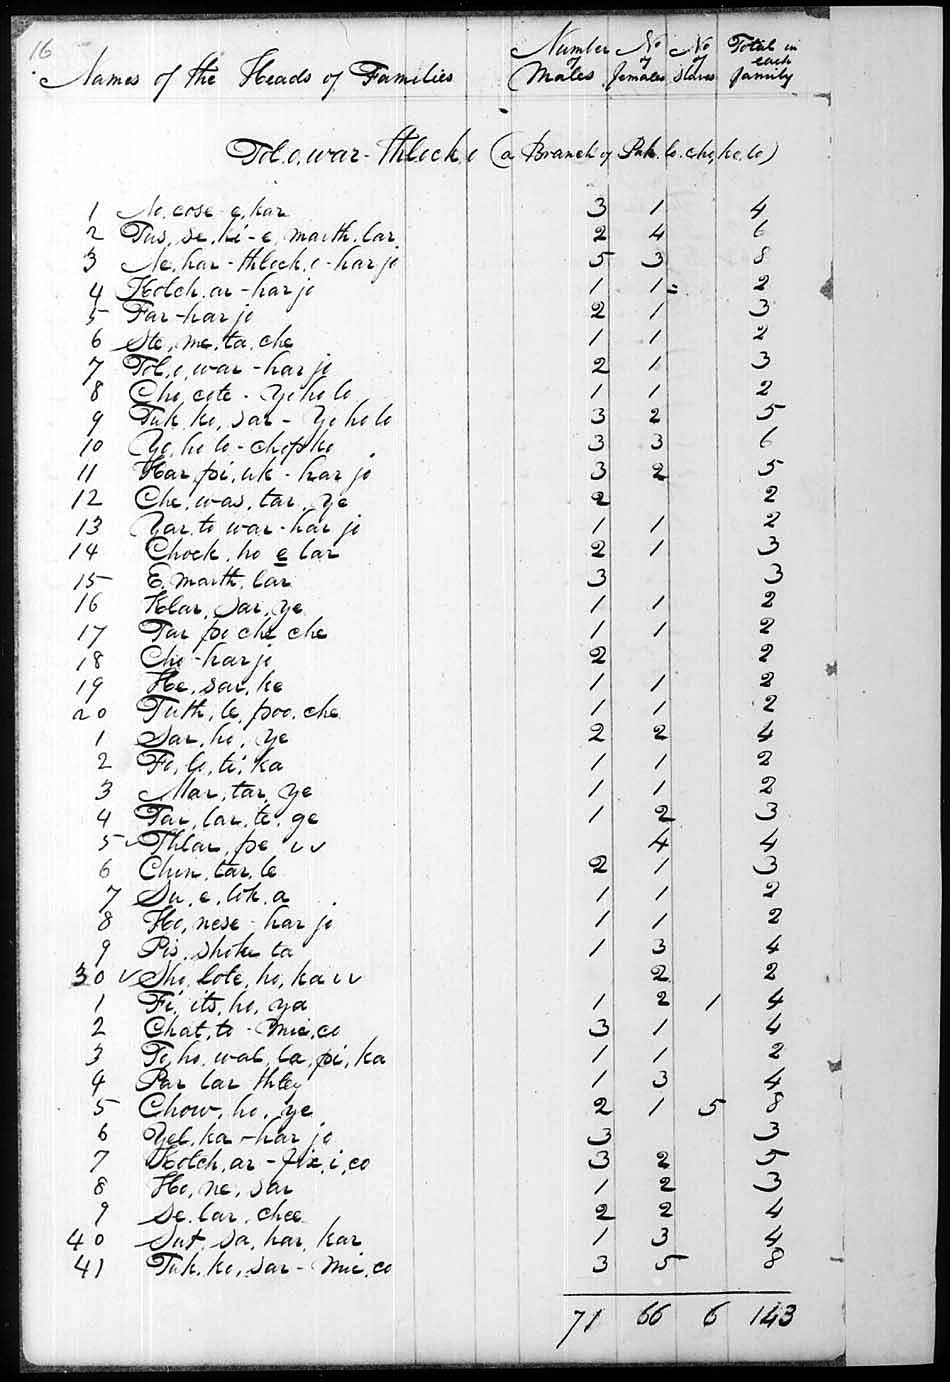 16
Names of the Heads of Families Number of Males No of females No of Slaves Total in each family
Tol.o.war-thlock,o (a Branch of Puk.to.cho,ko,lo)
1 No,cose-e,kar 3 1 4
2 Tus,se,ki-e,marth.lar 2 4 6
3 Ne,har-thlock,o-harjo 5 3 8
4 Kotch.ar-harjo 1 1 2
5 Far-harjo 2 1 3
6 Ste,me,ta,che 1 1 2
7 Tol,o,war-harjo 2 1 3
8 Cho,cote-Yoholo 1 1 2
9 Tuk,ko,sar-Yoholo 3 2 5
10 Yo,holo-chopko 3 3 6
11 Har,pi,uk-harjo 3 2 5
12 Che,was,tar,ye 2 2
13 Yar,to war-harjo 1 1 2
14 Chock,ho e lar 2 1 3
15 E.marth.lar 3 3
16 Klar,sar,ye 1 1 2
17 Tar po che che 1 1 2
18 Cho-harjo 2 2
19 He,sar,ke 1 1 2
20 Tuth,le,poo.che 1 1 2
1 Sar,ho,ye 2 2 4
2 Fo,lo,ti,ka 1 1 2
3 Mar,tar,ye 1 1 2
4 Tar,lar,te,ge 1 2 3
5 Thlar,pe 4 4
6 Chin,tar,le 2 1 3
7 Su,e,lok.a 1 1 2
8 Ho,nese-harjo 1 1 2
9 Pis,shoke ta 1 3 4
30 Sho,lote,ho,ka 2 2
1 Fi,its,ho,ya 1 2 1 4
2 Chat,to-Mic,co 3 1 4
3 To,ho,wal,la,pi,ka 1 1 2
4 Par lar thley 1 3 4
5 Chow,ho,ye 2 1 5 8
6 Yel,ka-harjo 3 3
7 Kotch,ar-fix,i,co 3 2 5
8 Ho,ne,sar 1 2 3
9 Se.lar.chee 2 2 4
40 Sut,sa,har,kar 1 3 4
41 Tuk,ko,sar-Mic,co 3 5 8
71 66 6 143